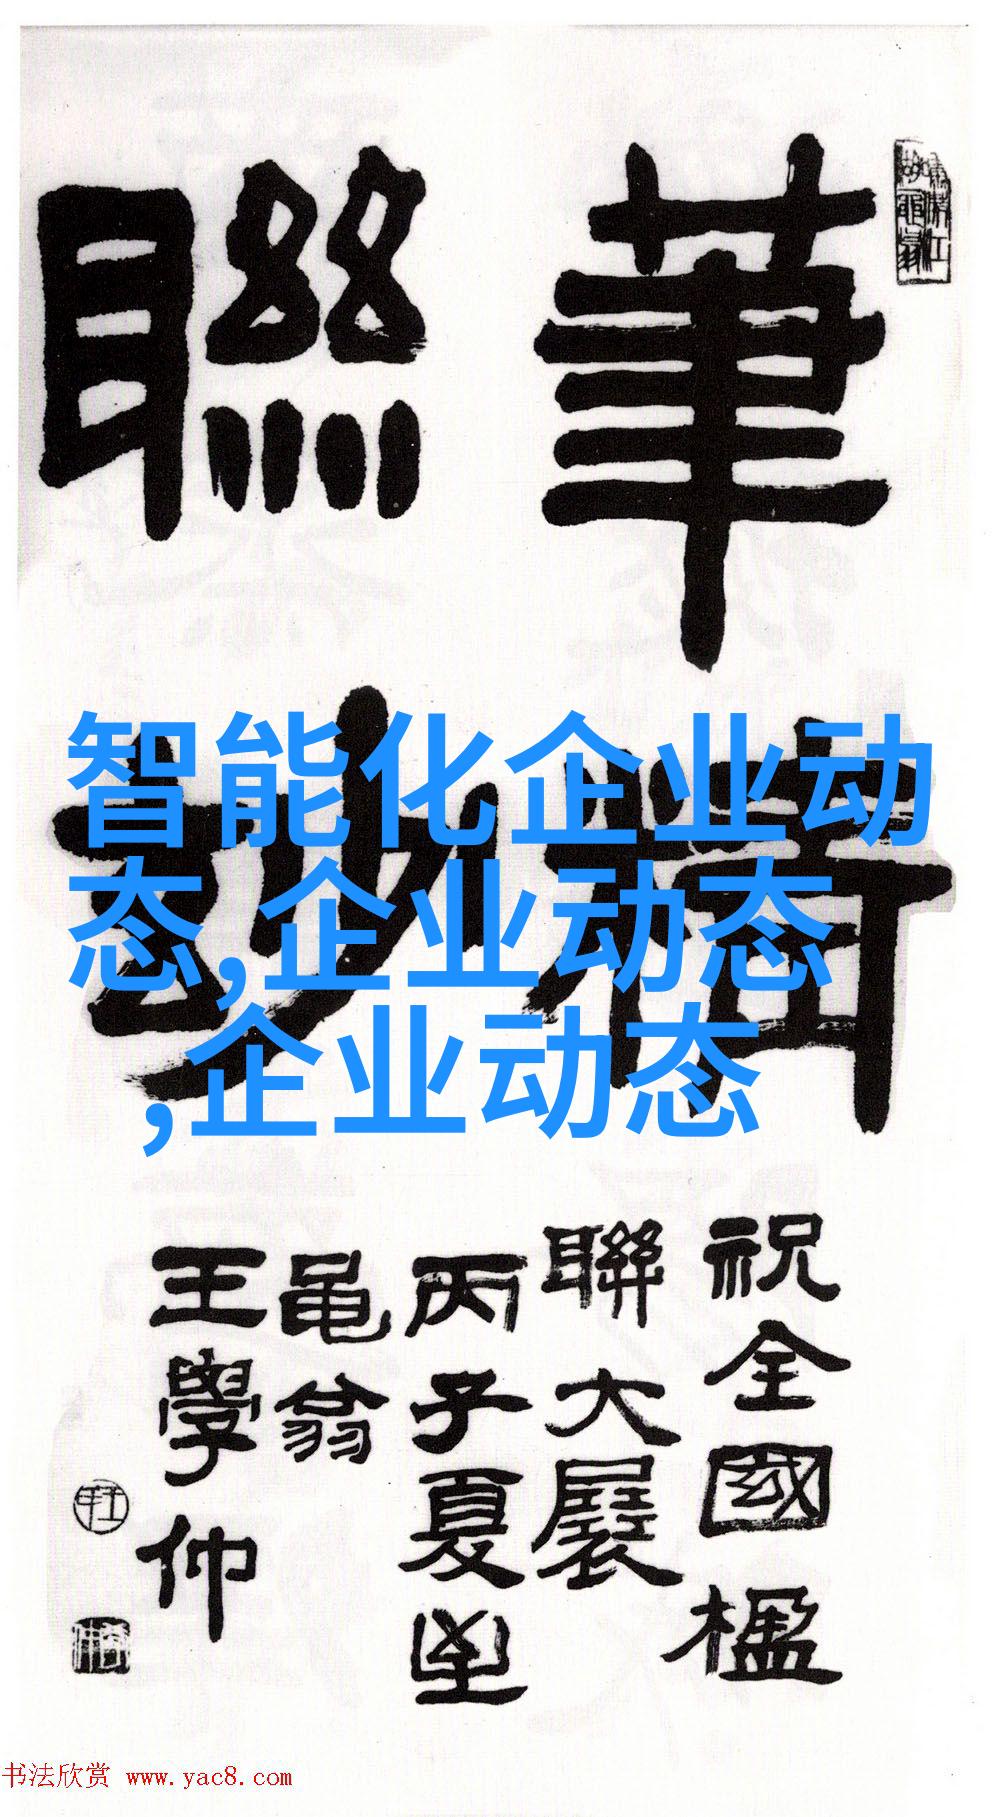 筆
聯
智能化企业动
态,企业动态
,企业动态
祝全國楹
聯大展
丙子夏
黽翁
王學仲
书法欣赏 www.yac8.com